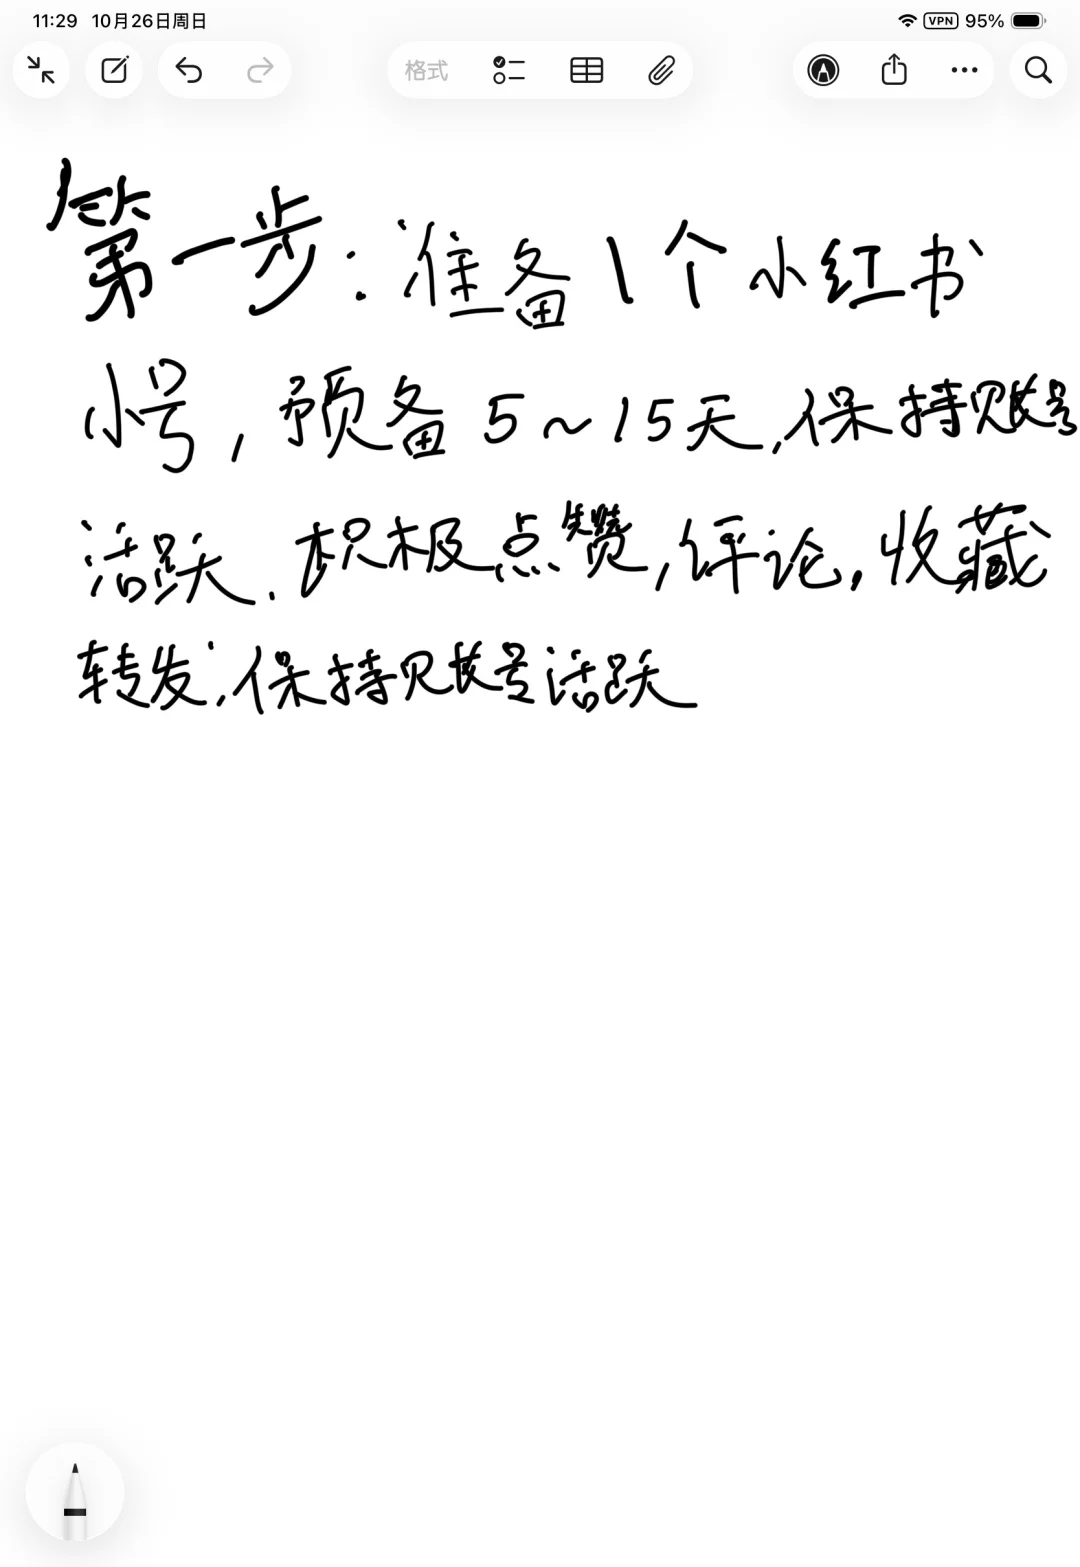 11:29 10月26日周日 VPN 95%
格式
第一步：准备1个小红书
小号，预备5~15天，保持账号
活跃．积极点赞，评论，收藏
转发，保持账号活跃